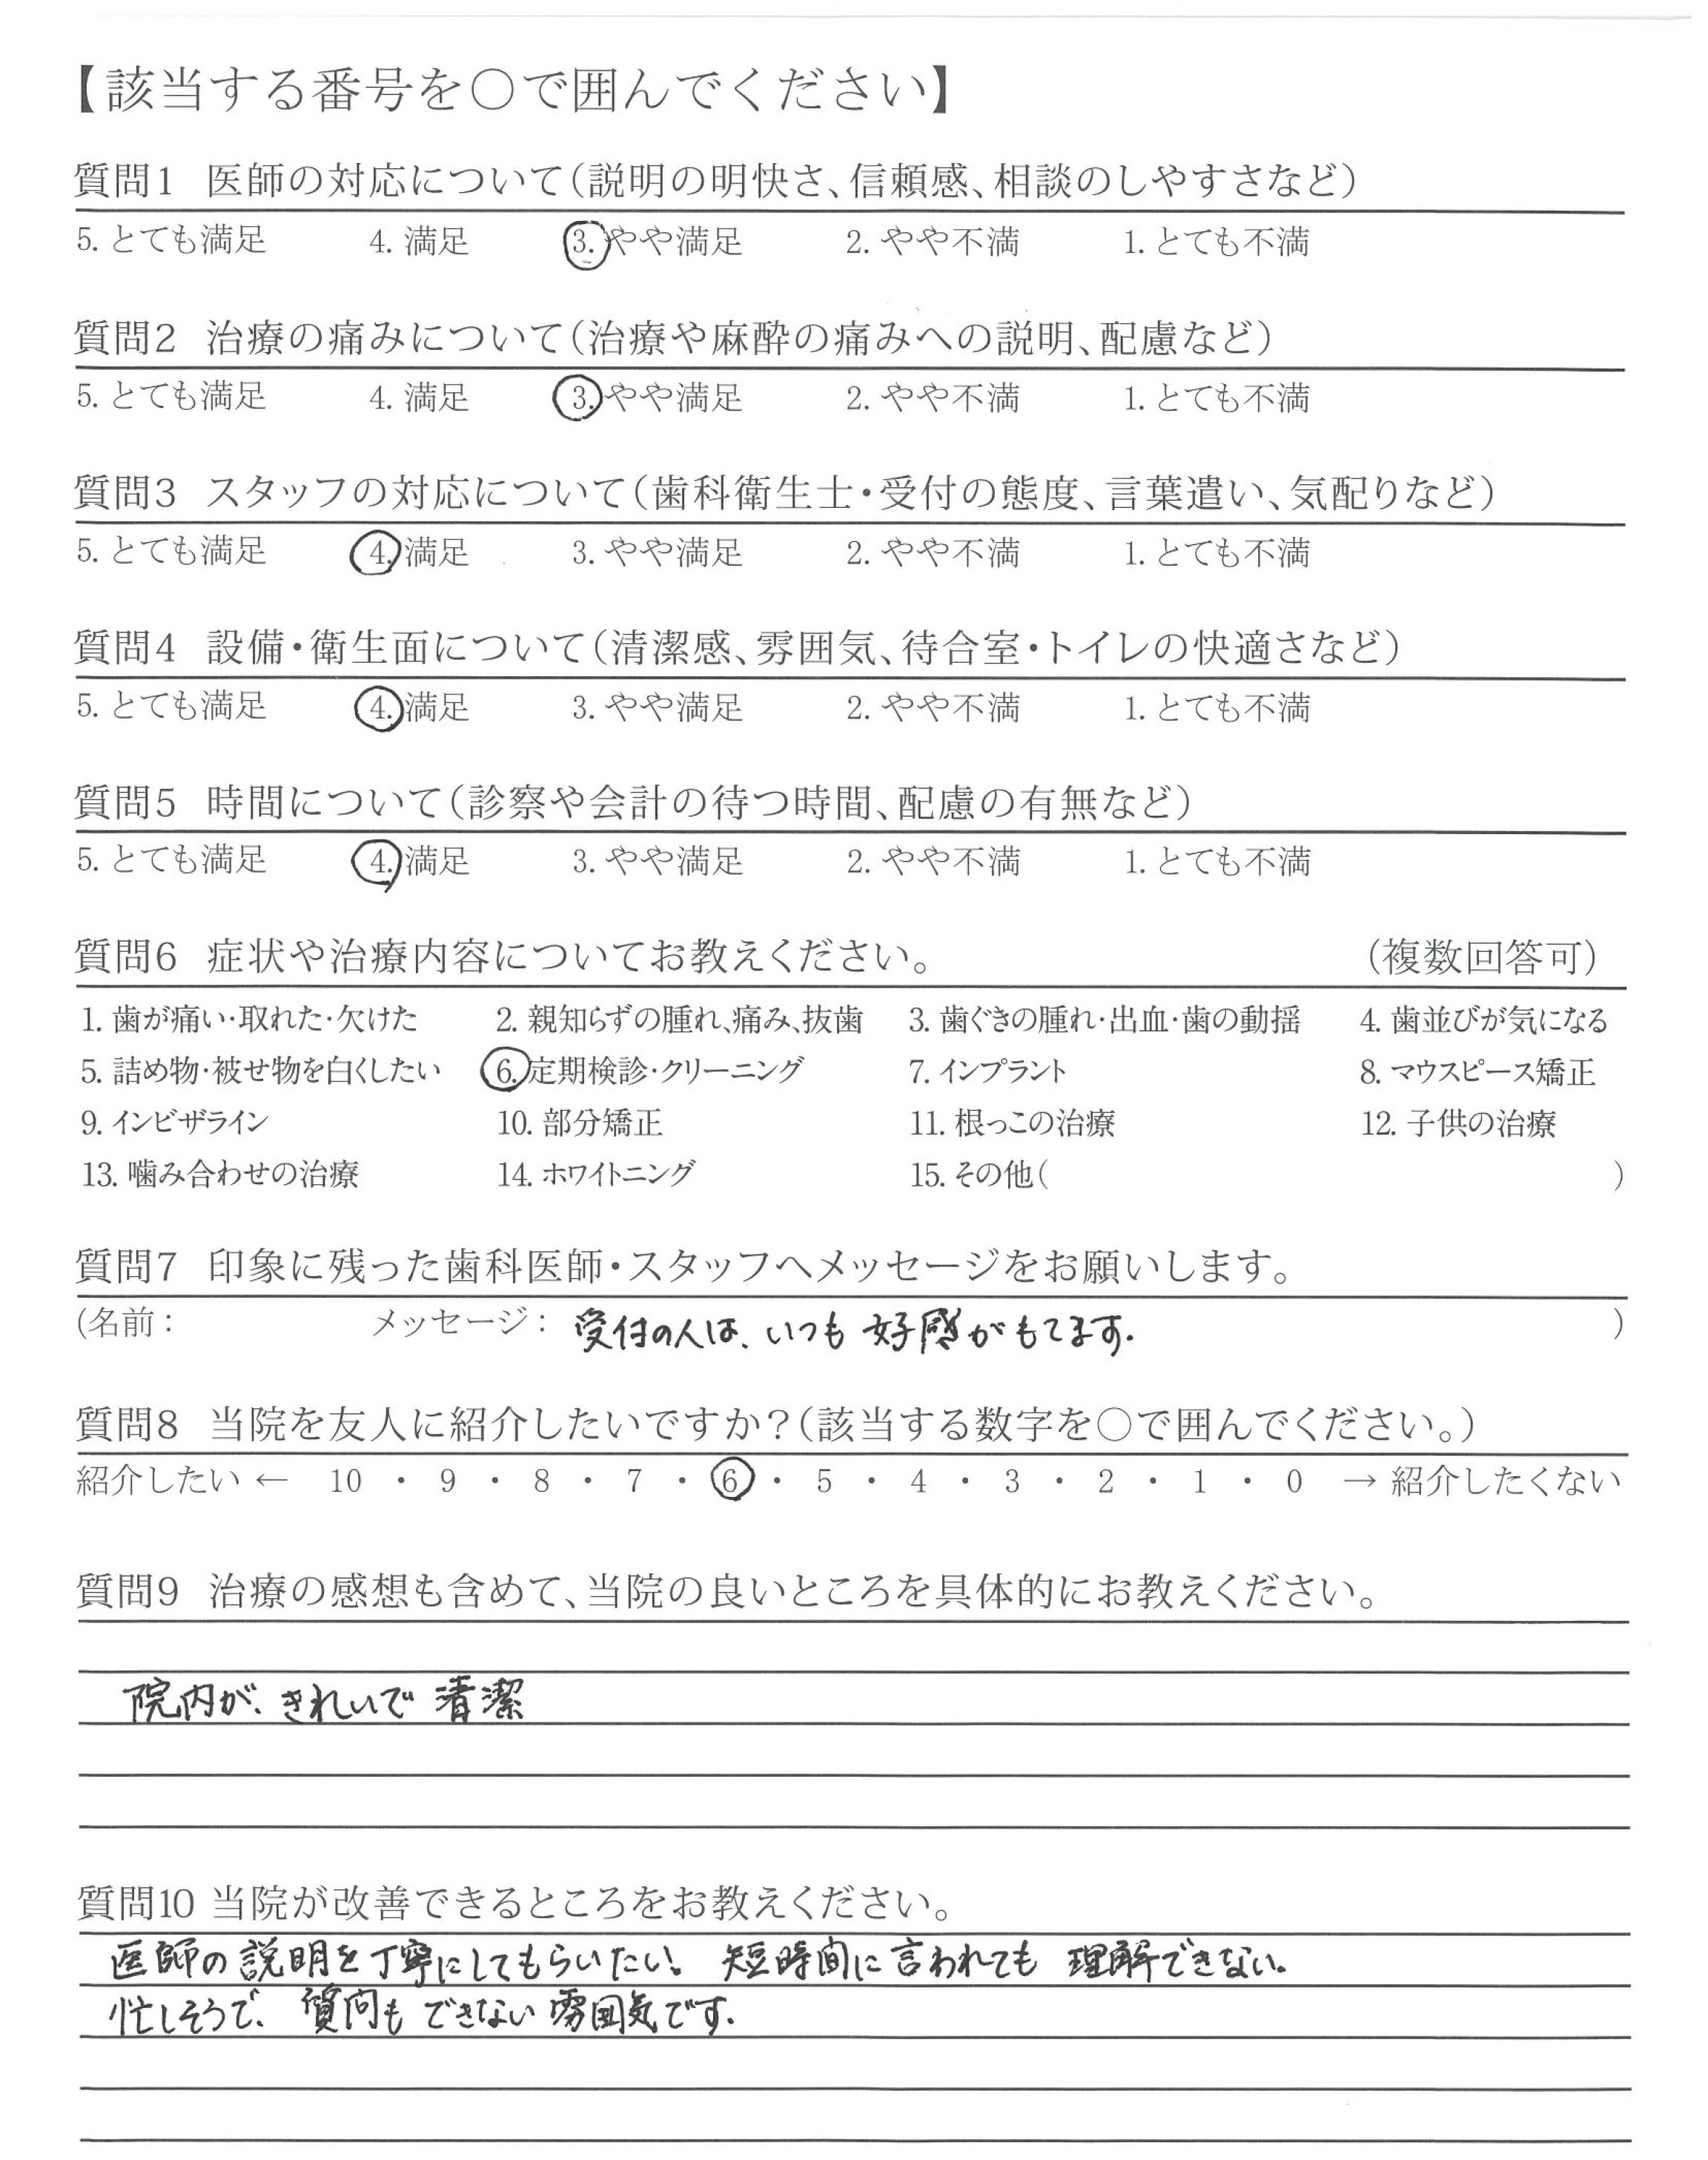 【該当する番号を○で囲んでください】
質問1 医師の対応について(説明の明快さ、信頼感、相談のしやすさなど)
5. とても満足 4. 満足 3. やや満足 2. やや不満 1. とても不満
質問2 治療の痛みについて(治療や麻酔の痛みへの説明、配慮など)
5. とても満足 4. 満足 3. やや満足 2. やや不満 1. とても不満
質問3 スタッフの対応について(歯科衛生士・受付の態度、言葉遣い、気配りなど)
5. とても満足 4. 満足 3. やや満足 2. やや不満 1. とても不満
質問4 設備・衛生面について(清潔感、雰囲気、待合室・トイレの快適さなど)
5. とても満足 4. 満足 3. やや満足 2. やや不満 1. とても不満
質問5 時間について(診察や会計の待つ時間、配慮の有無など)
5. とても満足 4. 満足 3. やや満足 2. やや不満 1. とても不満
質問6 症状や治療内容についてお教えください。 (複数回答可)
1. 歯が痛い・取れた・欠けた 2. 親知らずの腫れ、痛み、抜歯 3. 歯ぐきの腫れ・出血・歯の動揺 4. 歯並びが気になる
5. 詰め物・被せ物を白くしたい 6. 定期検診・クリーニング 7. インプラント 8. マウスピース矯正
9. インビザライン 10. 部分矯正 11. 根っこの治療 12. 子供の治療
13. 噛み合わせの治療 14. ホワイトニング 15. その他( )
質問7 印象に残った歯科医師・スタッフへメッセージをお願いします。
(名前: メッセージ: 受付の人は、いつも 好感がもてます。 )
質問8 当院を友人に紹介したいですか?(該当する数字を○で囲んでください。)
紹介したい ← 10 ・ 9 ・ 8 ・ 7 ・ 6 ・ 5 ・ 4 ・ 3 ・ 2 ・ 1 ・ 0 → 紹介したくない
質問9 治療の感想も含めて、当院の良いところを具体的にお教えください。
院内が、きれいで 清潔
質問10 当院が改善できるところをお教えください。
医師の説明を丁寧にしてもらいたい。 短時間に言われても 理解できない。
忙しそうで、 質問も できない 雰囲気です。